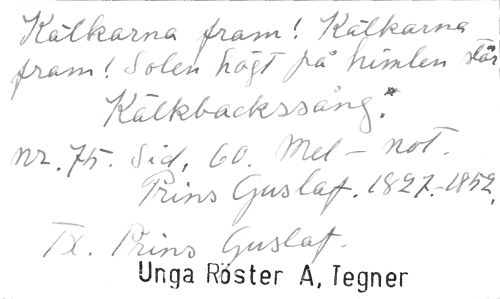 Kälkarna fram! Kälkarna
fram! Solen högt på himlen står
Kälkbackssång.*
Nr. 75. Sid. 60. Mel - not.
Prins Gustaf. 1827-1852.
Tx. Prins Gustaf.
Unga Röster A, Tegner